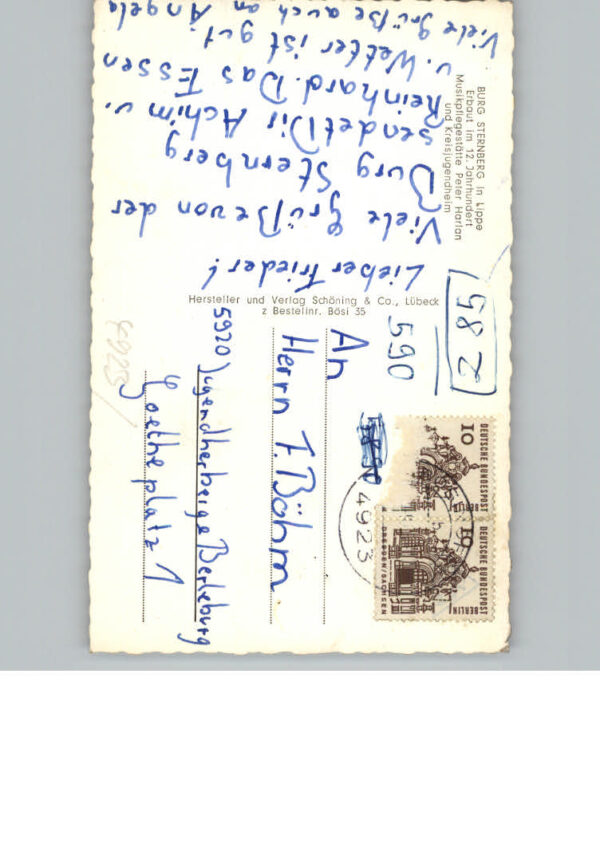 BURG STERNBERG in Lippe
Erbaut im 12. Jahrhundert
Musikpflegestätte Peter Harlan
und Kreisjugendheim
Lieber Frieder!
Viele Grüße von der
Burg Sternberg
sendet Dir Achim u.
Reinhard. Das Essen
u. Wetter ist gut
Viele Grüße auch an Angela
Hersteller und Verlag Schöning & Co., Lübeck
z Bestellnr. Bösi 35
582
590
An
Herrn F. Böhm
5920 Jugendherberge Berleburg
Goetheplatz 1
4923
10
DEUTSCHE BUNDESPOST
10
DEUTSCHE BUNDESPOST
BERLIN
DRESDEN/SACHSEN
4923